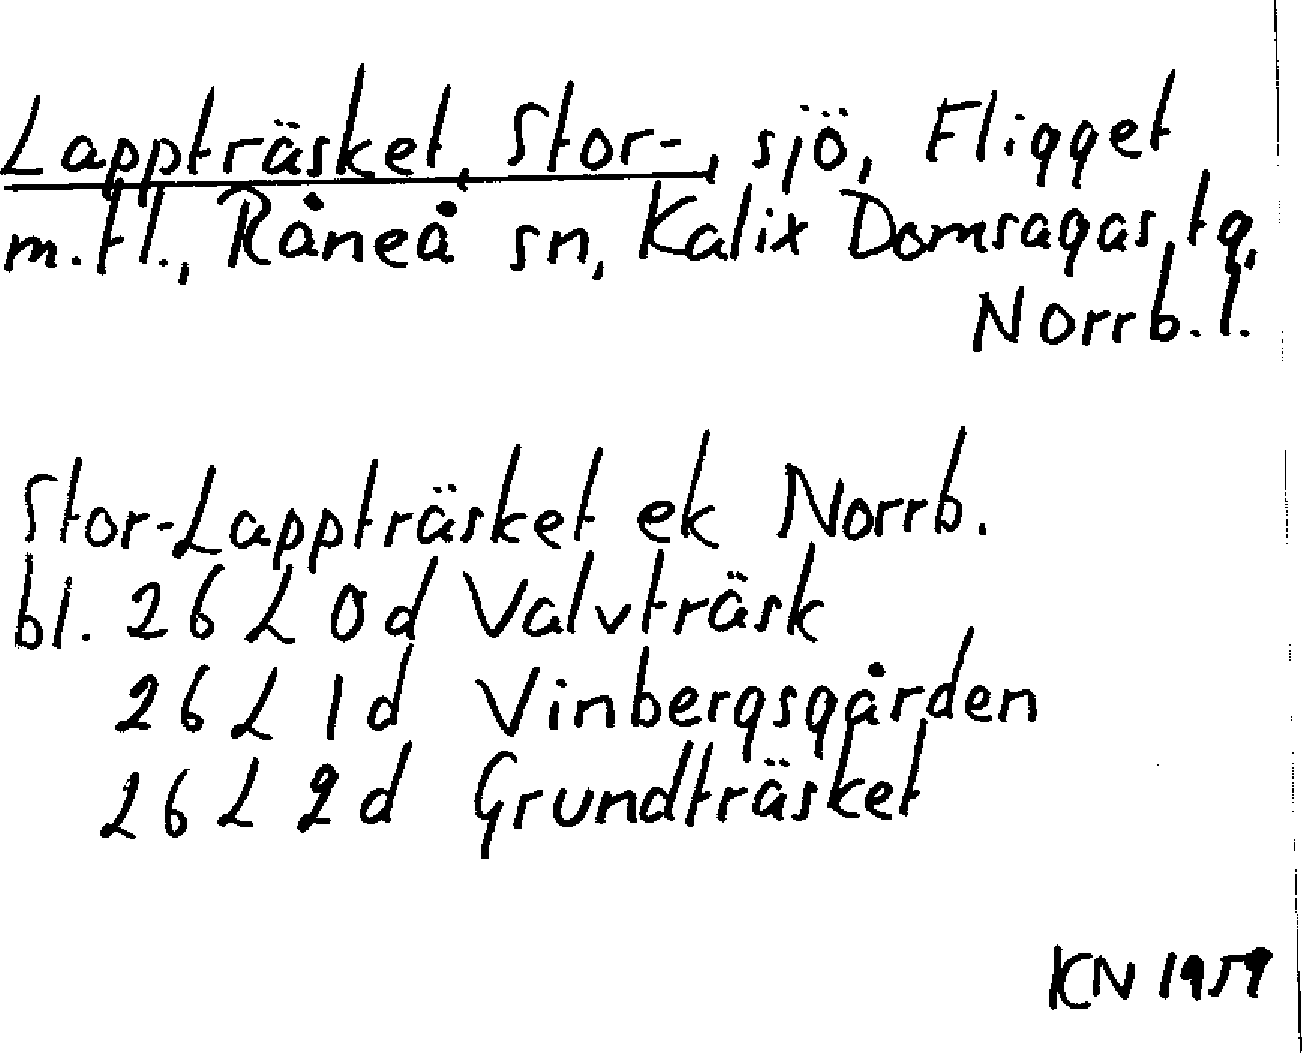 Lappträsket, Stor-, sjö, Fligget
m.fl., Råneå sn, Kalix Domsagas tg,
Norrb. l.
Stor-Lappträsket ek Norrb.
bl. 26 L 0d Valvträsk
26 L 1d Vinbergsgården
26 L 2d Grundträsket
KN 1959